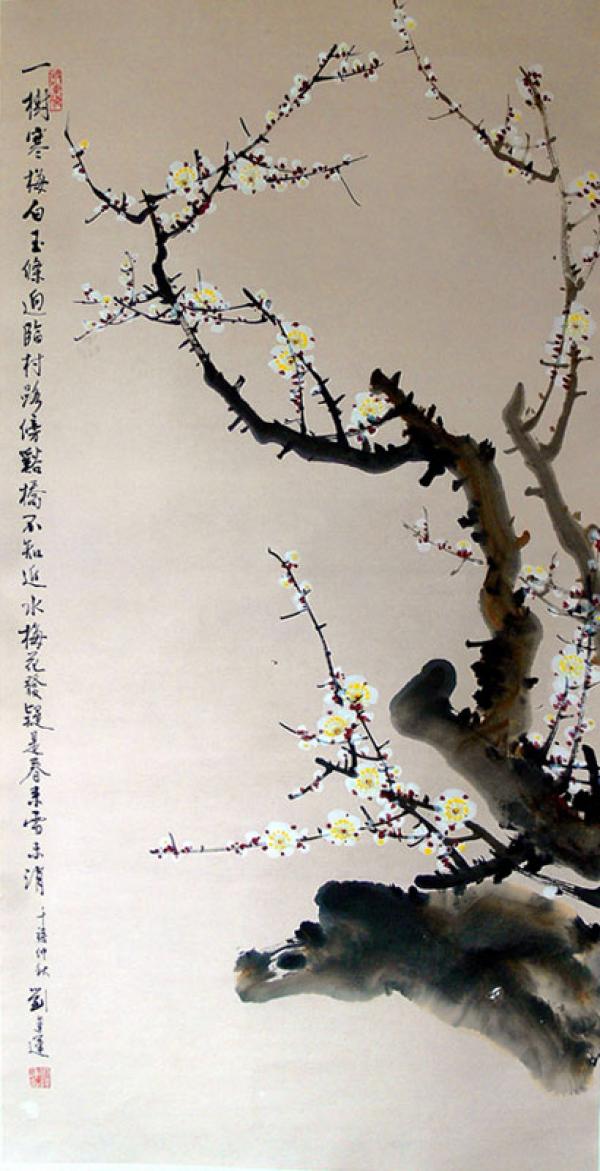 一樹寒梅白玉條迥臨村路傍谿橋不知近水梅花發疑是春來雪未消
仲秋劉